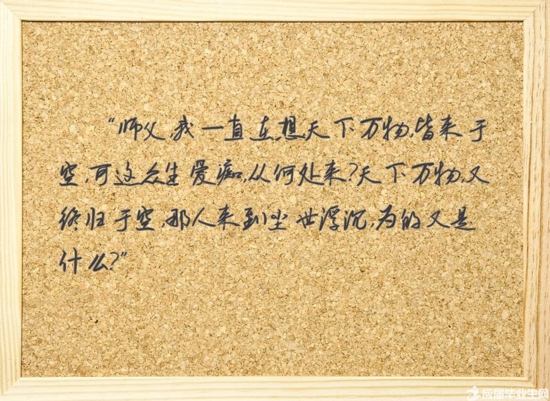 “师父,我一直在想天下万物,皆来于
空,可这众生爱痴,从何处来?天下万物,又
终归于空,那人来到尘世浮沉,为的又是
什么?”
应届毕业生网